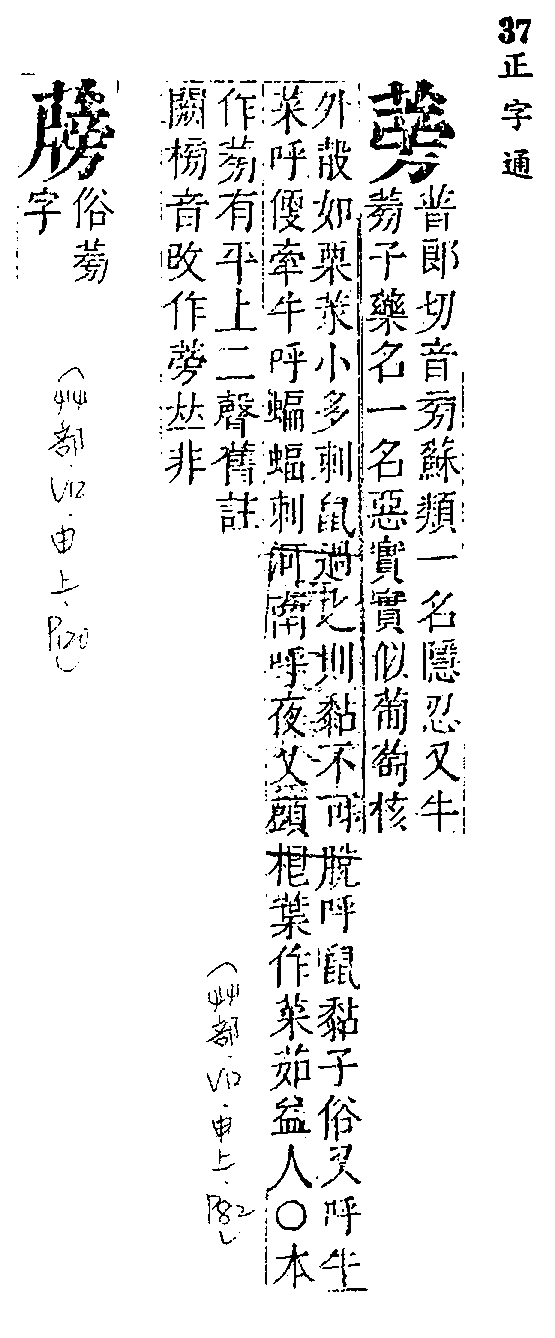 37
正字通
蒡
普郎切音蘇類一名隱忍又牛
蒡子藥名一名惡實實似葡萄核
外殼如栗莍小多刺鼠過之則黏不可脫呼鼠黏子俗又呼牛
菜呼便牽牛呼蝙蝠刺河南呼夜叉頭根葉作菜茹益人○本
作蒡有平上二聲舊註
闕榜音改作蒡丛非
(艸部.V12.申上.P82)
俗蒡
字
(艸部.V12.申上.P120)